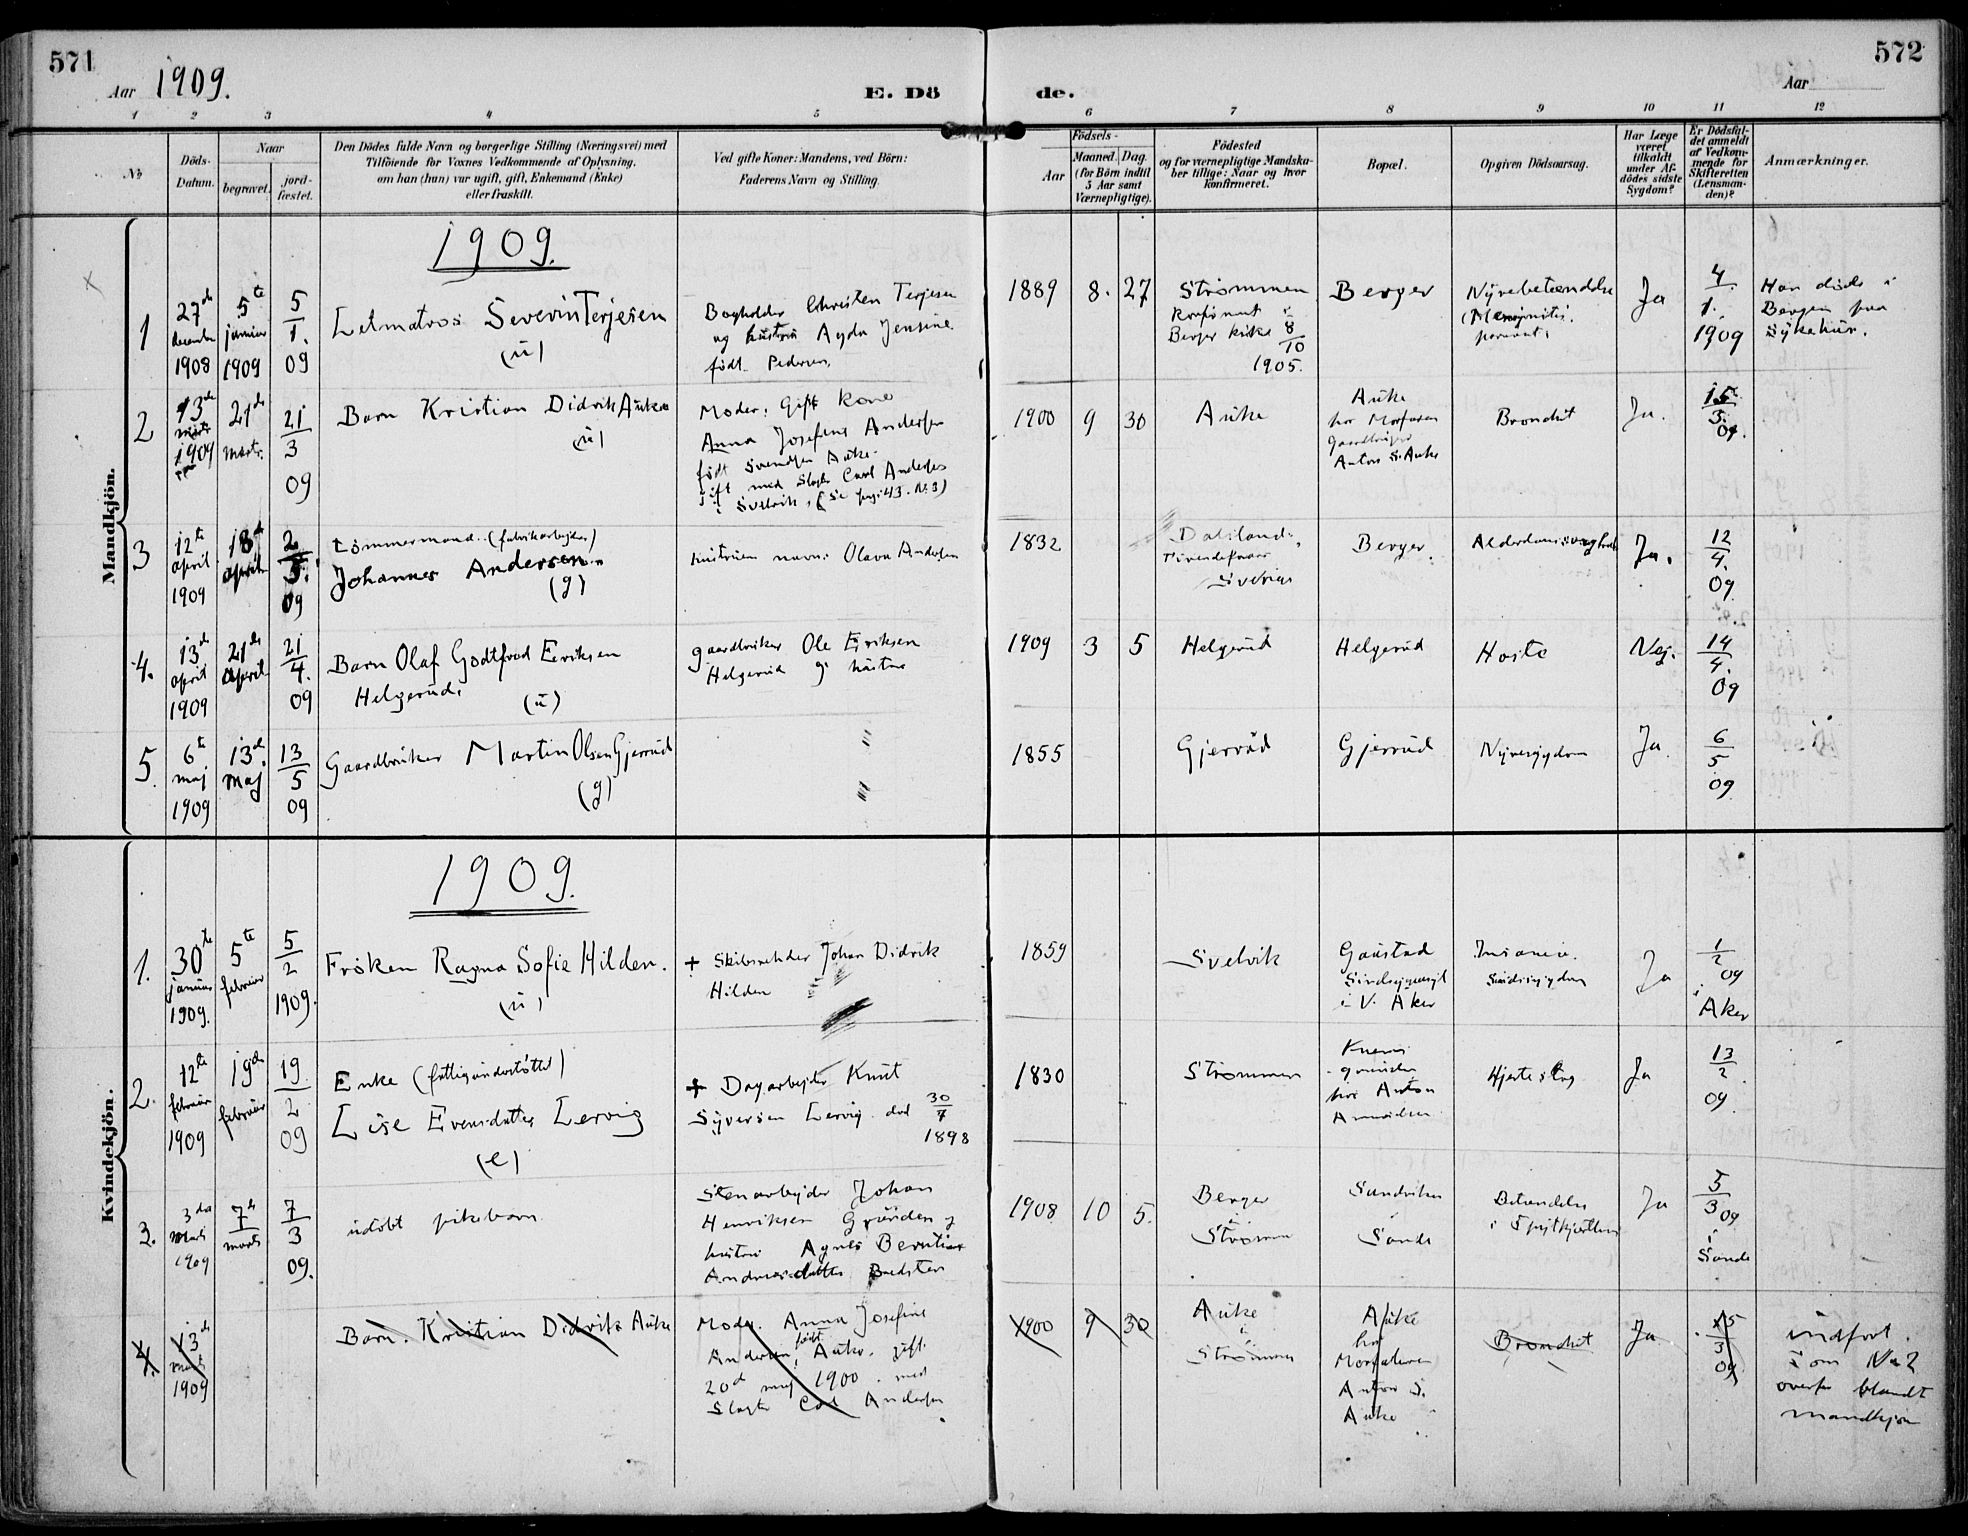 571
Aar 1909.
E. Dö
de.
572
Aar
1 2 3 4 5 6 7 8 9 10 11 12
No
Döds-
Datum.
Naar
begravet.
jord-
fæstet.
Den Dödes fulde Navn og borgerlige Stilling (Næringsvei) med
Tilföiende for Voxnes Vedkommende af Oplysning,
om han (hun) var ugift, gift, Enkemand (Enke)
eller fraskilt.
Ved gifte Koner: Mandens, ved Börn:
Faderens Navn og Stilling.
Födsels-
Aar
Maaned. Dag.
(for Börn indtil
5 Aar samt
Værnepligtige).
Födested
og for værnepligtige Mandska-
ber tillige: Naar og hvor
konfirmeret.
Bopæl.
Opgiven Dödsaarsag.
Har Læge
været
tilkaldt
under Af-
dödes sidste
Sygdom?
Er Dödsfal-
det anmeldt
af Vedkom-
mende for
Skifteretten
(Lensman-
den)?
Anmærkninger.
Mandkjön.
1909.
1
27de
december
1908
5te
januar
1909
5
1.
09
Letmatros Severin Terjesen
(u)
Bogholder Christen Terjesen
og hustru Agda Jensine
født Pedersen.
1889 8. 27
Strømmen
konfirmert i
Berger kirke 8
10
1905.
Berger
Nyrebetændelse
Ja
4
1.
1909
Han døde i
Bergen paa
sykehus.
2
13de
marts
1909
21de
marts.
21
3
09
Barn Kristian Didrik Auke
(u)
Moder: Gift kone
Anna Josefine Andersen
født Svendsen Auke.
gift med Slagter Carl Andersen
i Svelvik. (Se pag. 43. No. 3)
1900 9 30
Auke
Auke
hos Morfaren
Gaardbruger
Anton S. Auke
Bronchit
Ja.
15
3.
09.
3
12te
april
1909
18de
april
2
5.
09
Tømmermand. (fabrikarbejder)
Johannes Andersen
(g)
hustruens navn: Olava Andersen
1832
Dalsland.
Sverige
Berger.
Alderdomssvaghed
Ja.
12
4.
09.
4.
13de
april
1909
21de
april
21
4.
09
Barn Olaf Godtfred Eriksen
Helgerud.
(u)
gaardbruker Ole Eriksen
Helgerud og hustru
1909 3 5
Helgerud
Helgerud
Hoste
Nej.
14
4.
09
5.
6te
maj
1909
13de
maj
13
5
09
Gaardbruker Martin Olsen Gjerrud
(g)
"
"
1855
Gjerrud
Gjerrud
Nyresygdom
Ja.
6
5
09
Kvindekjön.
1909.
1.
30te
januar
1909.
5te
februar
5
2
1909.
Frøken Ragna Sofie Hilden.
(u)
+ Skibsreder Johan Didrik
Hilden
1859
Svelvik
Gaustad
Sindsygeasyl
i V. Aker
Insania.
Sindssygdom
Ja
1
2
09
i
Aker
2.
12te
februar
1909
19de
februar
19
2
09
Enke (fattigunderstøttet)
Lise Evensdatter Lervig
(e)
+ Dagarbejder Knut
Syversen Lervig. død 30
7
1898
1830
Strømmen
hos Anton
Amundsen
Hjerteslag
Ja
13
2.
09.
3.
3die
marts
1909
7de
marts
7
3
09.
udøbt pikebarn
Stenarbejder Johan
Henriksen Grunden og
hustru Agnes Berntine
Andreasdatter
1908 10 5.
Berger
i
Strømm
Sandviken
i
Sande
Betændelse
i Spytkjertlen
Ja
5
3 09
i
Sande
4.
13de
marts
1909
Barn. Kristian Didrik Auke
Moder. Anna Josefine
Andersen, født Auke. gift.
20de maj 1900. med
Slagter Carl Andersen
1900 9 30
Auke
i
Strømmen
Auke
hos
Morfaderen
Anton S.
Auke
Bronchit
Ja
15
3
09
indført.
som No 2
ovenfor blandt
mandkjøn